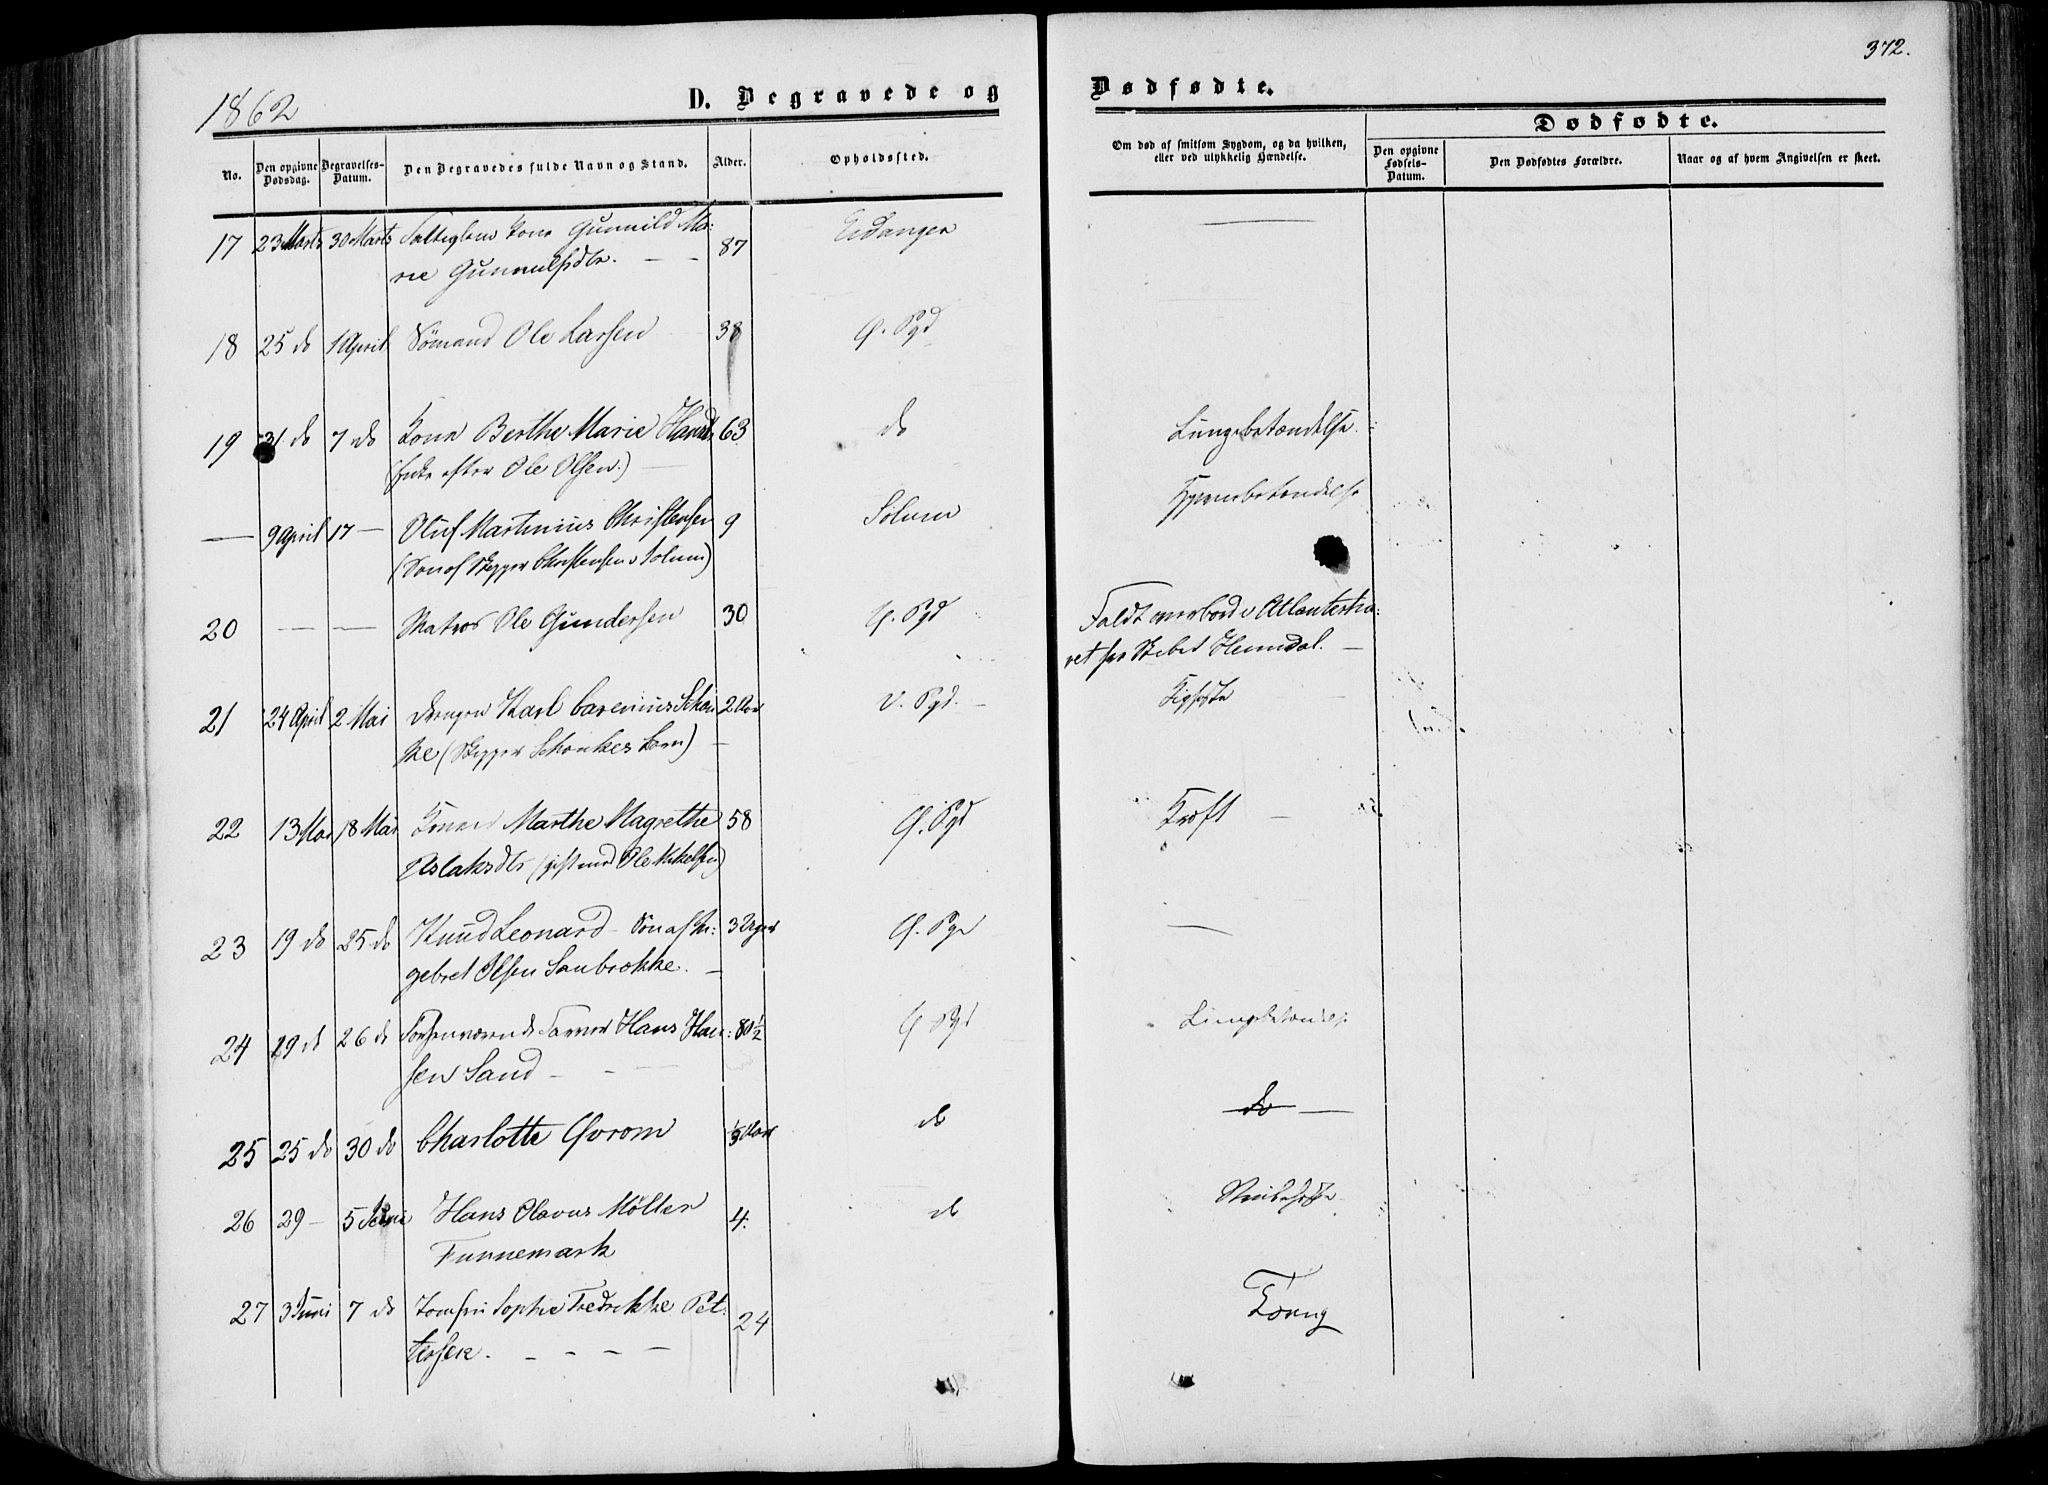 372.
1862
D. Begravede og Dødfødte.
Dødfødte.
No.
Den opgivne Dødsdag.
Begravelses-Datum.
Den Begravedes fulde Navn og Stand.
Alder.
Opholdssted.
Om død af smitsom Sygdom, og da hvilken, eller ved ulykkelig Hændelse.
Den opgivne Fødsels-Datum.
Den Dødfødtes Forældre.
Naar og af hvem Angivelsen er skeet.
17 23 Marts 30 Marts Kone Gunnild Ma: 87 Eidanger —
rie
18 25 do 1 April Sømand Ole Larsen 38 Ø. Pgd
19 31 do 7 do Kone Berthe Marie 63 do Lungebetændelse
(Enke efter Ole Olsen.) —
— 9 April 17 — Oluf Martinius Christensen 9 Solum
(Søn af Skipper Christensen Solum)
20 — — Matros Ole Gundersen 30 Ø. Pgd Faldt overbord i Atlanterha:
vet fra Skibet Heimdal. —
21 24 April 2 Mai Drengen Karl 2 Aar V. Pgd. —
ke (Skipper Schankes Søn) —
22 13 Mai 18 Mai Konen Marthe Magrethe 58 Ø. Pgd Kræft —
Aslaksdtr (gift med Ole Mikelsen)
23 19 do 25 do Knud Leonard Søn af In: 3 Uger Ø. Pgd —
gebret Olsen —
24 19 do 26 do Hans Han: 80½ Ø. Pgd Lungebetændelse
sen Sand — —
25 25 do 30 do Charlotte Qvrom Aar do do —
26 29 — 5 Juni Hans Olavus Møller 4. do Strubehoste
Funnemark
27 3 Juni 7 do Jomfru Sophie Fredrikke Pet: 24 Tæring
tersen. — — — —